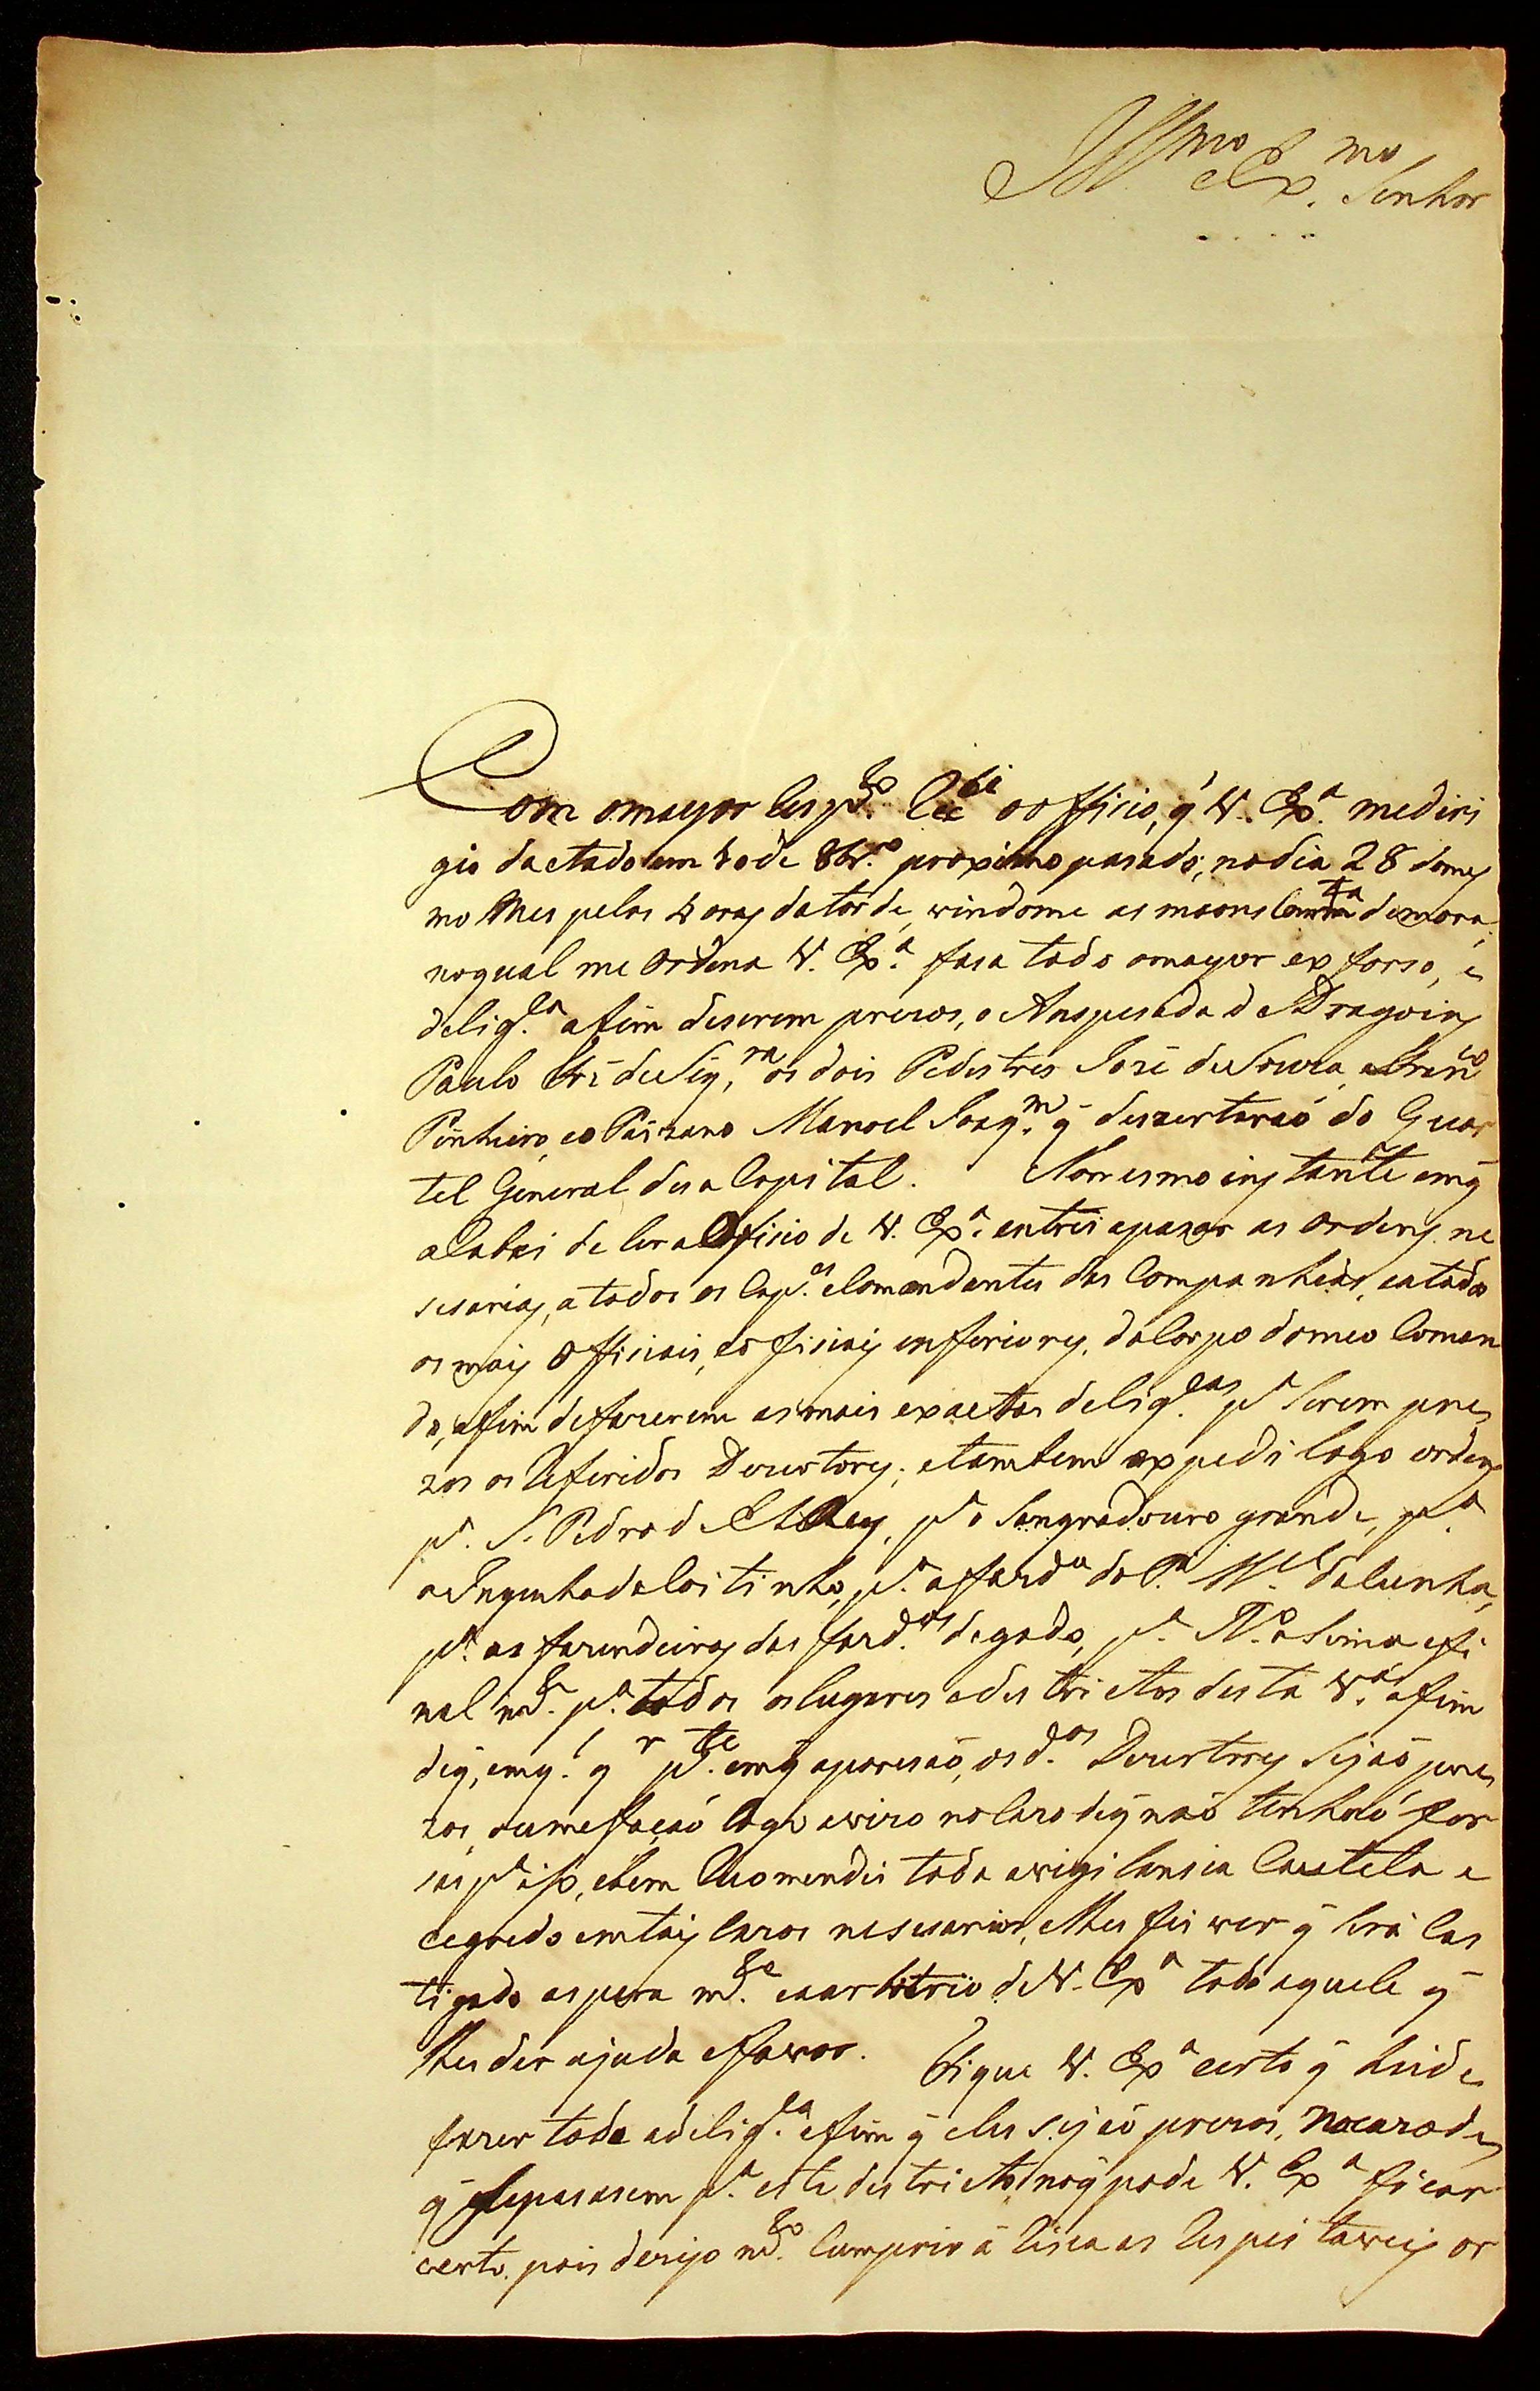 Ill.mo e Ex.mo Senhor
Com omayor Resp.to Recebi oofficio, q̃ V. Ex.a mediri
gio dactado em 4 de 8br.o proximo pasado, nodia 28 domes
mo Mes pelas 4 oras datarde, vindome as maons Com ta demora,
noqual me Ordena V. Ex.a fasa todo omayor exforso, e
delig.ca afim deserem prezos, o Anspesada de Dragoins
Paulo Joze de Siq.ra, os dois Pedestres Joze deSouza,
Pinheiro, eo Paizano Manoel Joaq.m q̃ dezertaraõ do Quar
tel General desa Capital. Nomesmo instante emq̃
acabei de ler o Oficio de V. Ex.a entrei apasar as Ordens ne
sesarias, a todos os Cap.es e Comandantes das Companhias, eatodos
os mais Officiais, e Oficiais inferiores, do Corpo domeo Coman
do, afim defazerem as mais exactas delig.cas p.a Serem pre
zos os Referidos Dezertores; etambem expedi logo ordens
p.a S. Pedro d ElRey, p.a o Sangradouro grande, p.a
o Engenho do Coitinho, p.a afazd.a do P.e M.el daCunha,
p.a as fazendeiras das fazd.as degado, p.a N.o aSima, efi
nal m.te p.a todos os lugares edestrictos desta V.a afim
deq̃, emq.l q.r p.te emq̃ aparesaõ, os d.os Dezertores Sejaõ pre
zos, oumefasaõ logo avizo noCazo deq̃ naõ tenhaõ for
sas p.a iso, ebem Recomendei toda avigilansia Cautela e
cegredo emtais Cazos nesesarios, elhes fis ver q̃ Será Cas
tigado aspera m.te eaarbitrio de V. Ex.a todo aquele q̃
lhes der ajuda efavor. Fique V. Ex.a certo q̃ heide
fazer toda adelig.ca afim q̃ eles sejaõ prezos, Nocazo de
q̃ Sepasasem p.a este destricto, noq̃ pode V. Ex.a ficar
certo, pois dezejo m.to Cumprir á Risca as Respeitaveis or